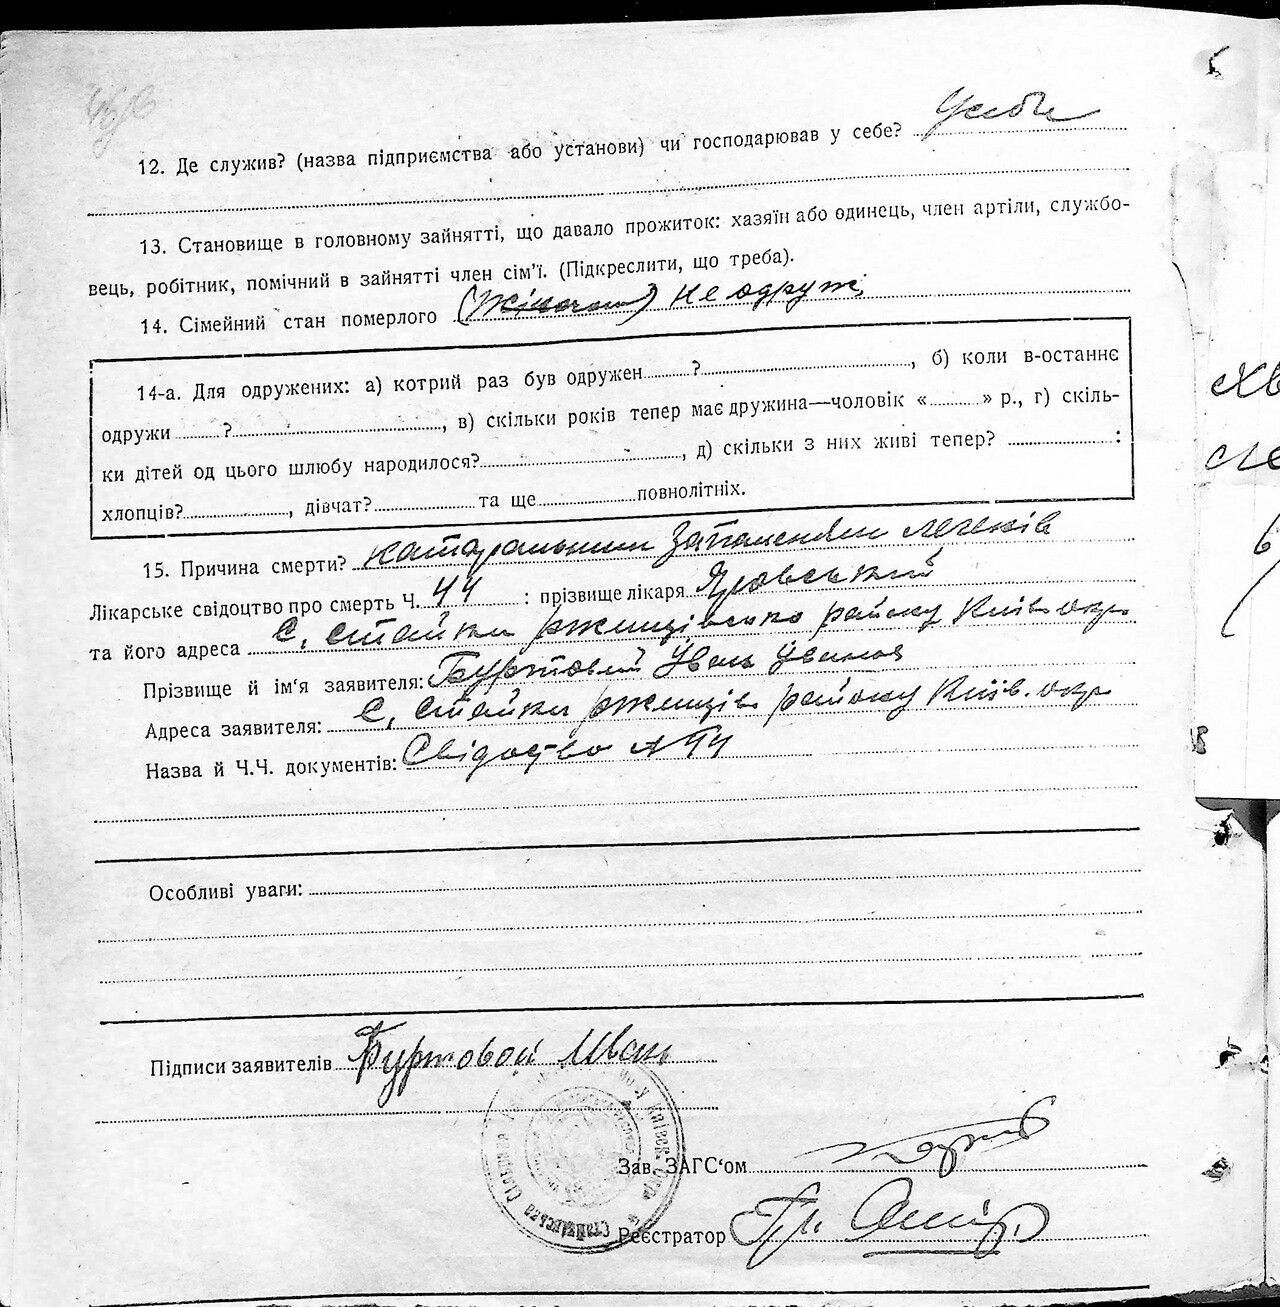 12. Де служив? (назва підприємства або установи) чи господарював у себе? У себе
13. Становище в головному зайнятті, що давало прожиток: хазяїн або одинець, член артіли, службо-
вець, робітник, помічний в зайнятті член сім'ї. (Підкреслити, що треба).
14. Сімейний стан померлого не одруж
14-а. Для одружених: а) котрий раз був одружен ?, б) коли в-останнє
одружи ?, в) скільки років тепер має дружина—чоловік « » р., г) скіль-
ки дітей од цього шлюбу народилося?, д) скільки з них живі тепер? :
хлопців?, дівчат? та ще повнолітніх.
15. Причина смерти? катаральним запаленням легенів
Лікарське свідоцтво про смерть Ч. 44 : прізвище лікаря Яровський
та його адреса С. Стайки Ржищівсько району Київ. окр.
Прізвище й ім'я заявителя: Буртовий Іван Іванов
Адреса заявителя: С. Стайки Ржищів. району Київ. окр.
Назва й Ч.Ч. документів: Свідоство № 44
Особливі уваги:
Підписи заявителів Буртовой Иван
Зав. ЗАГС'ом
Реєстратор